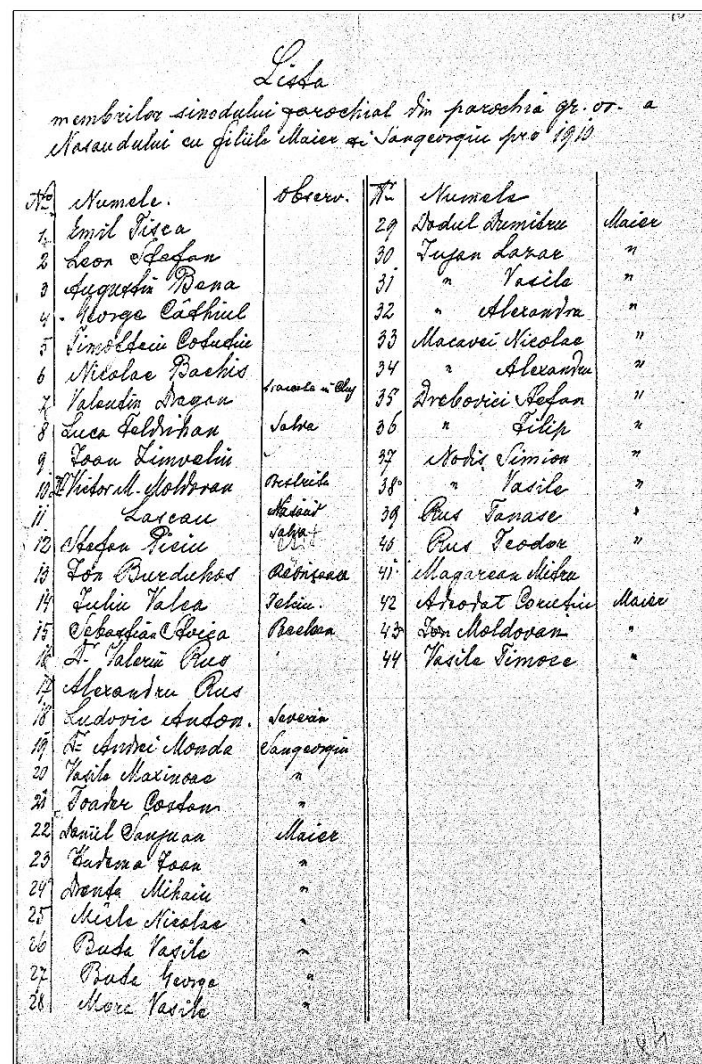 Lista
membrilor sinodului parochial din parochia gr. or. a
Nasaudului cu filiile Maier si Sangeorgiu pro 1919
Nro Numele. Observ.
1 Emil Tisca
2 Leon Stefan
3 Augustin Bena
4 George Câthiul
5 Cotutiu
6 Nicolae Bachis
7 Valentin Dragan Cluj
8 Luca Feldrihan Salva
9 Ioan
10 Dr Victor M. Moldovan Bistrita
11 Lascau Nasaud
12 Stefan Piciu Salva
13 Ion Burduhos
14 Iuliu Valea Telciu.
15 Sebastian Stoica
16 Dr Valeriu Rus
17 Alexandru Rus
18 Ludovic Anton. Severin
19 Dr Andrei Monda Sangeorgiu
20 Vasile Maxineac "
21 Toader Costan "
22 Daniil Sanjuan Maier
23 Ioan "
24 Drenta Mihaiu "
25 Misle Nicolae "
26 Buda Vasile "
27 Buda George "
28 More Vasile "
Nr Numele
29 Dodul Dumitru Maier
30 Lazar "
31 " Vasile "
32 " Alexandru "
33 Macavei Nicolae "
34 " Alexandru "
35 Drebovici Stefan "
36 " Filip "
37 Nodis Simion "
38 " Vasile "
39 Rus Tanase "
40 Rus Teodor "
41 Magarean Mitru
42 Adeodat Corutiu Maier
43 Ion Moldovan "
44 Vasile Timoce "